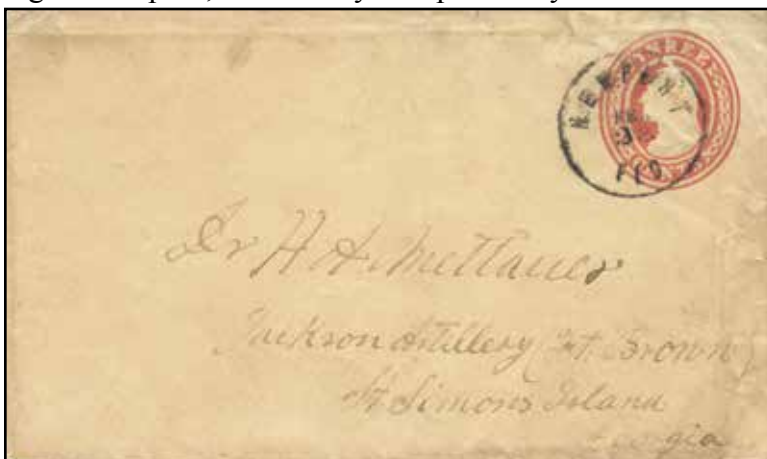 THREE
NEWPORT
FLO
Dr H A Mettauer
Jackson Artillery (Ft. Brown)
St Simons Island
Georgia